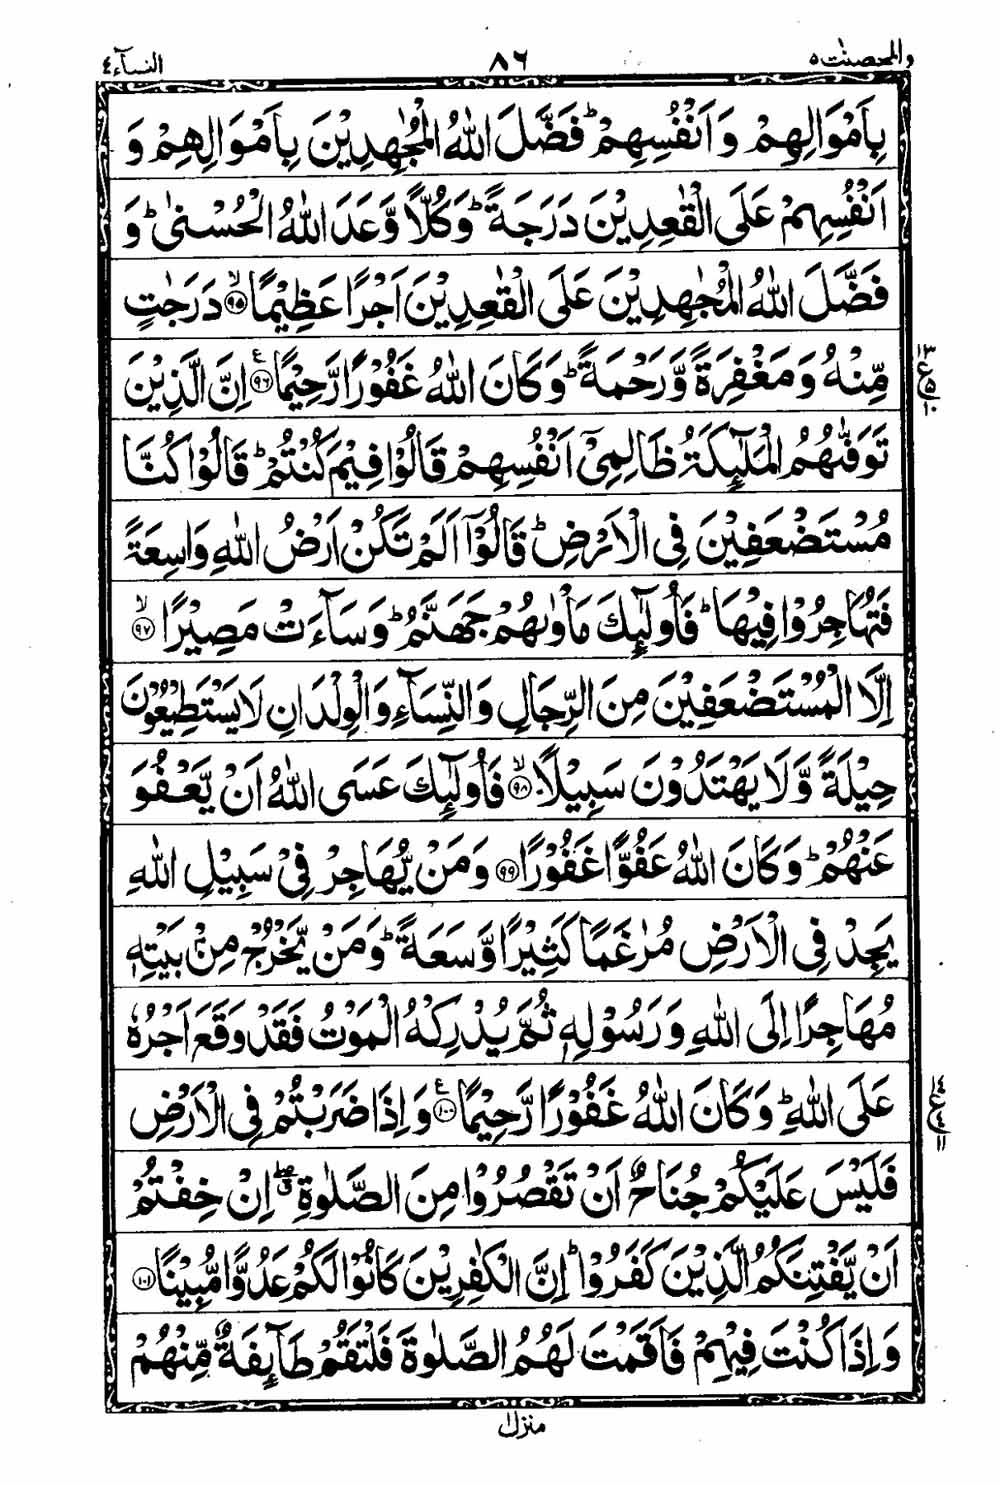 والمحصنت ٥ ٨٦ النسآء ٤
بِاَمْوَالِهِمْ وَ اَنْفُسِهِمْ ؕ فَضَّلَ اللّٰهُ الْمُجٰهِدِیْنَ بِاَمْوَالِهِمْ وَ
اَنْفُسِهِمْ عَلَی الْقٰعِدِیْنَ دَرَجَةً ؕ وَ كُلًّا وَّعَدَ اللّٰهُ الْحُسْنٰی ؕ وَ
فَضَّلَ اللّٰهُ الْمُجٰهِدِیْنَ عَلَی الْقٰعِدِیْنَ اَجْرًا عَظِیْمًا ۙ﴿۹۵﴾ دَرَجٰتٍ
مِّنْهُ وَ مَغْفِرَةً وَّ رَحْمَةً ؕ وَ كَانَ اللّٰهُ غَفُوْرًا رَّحِیْمًا ﴿۹۶﴾ ع اِنَّ الَّذِیْنَ
تَوَفّٰىهُمُ الْمَلٰٓئِكَةُ ظَالِمِیْۤ اَنْفُسِهِمْ قَالُوْا فِیْمَ كُنْتُمْ ؕ قَالُوْا كُنَّا
مُسْتَضْعَفِیْنَ فِی الْاَرْضِ ؕ قَالُوْۤا اَلَمْ تَكُنْ اَرْضُ اللّٰهِ وَاسِعَةً
فَتُهَاجِرُوْا فِیْهَا ؕ فَاُولٰٓئِكَ مَاْوٰىهُمْ جَهَنَّمُ ؕ وَ سَآءَتْ مَصِیْرًا ۙ﴿۹۷﴾
اِلَّا الْمُسْتَضْعَفِیْنَ مِنَ الرِّجَالِ وَ النِّسَآءِ وَ الْوِلْدَانِ لَا یَسْتَطِیْعُوْنَ
حِیْلَةً وَّ لَا یَهْتَدُوْنَ سَبِیْلًا ۙ﴿۹۸﴾ فَاُولٰٓئِكَ عَسَی اللّٰهُ اَنْ یَّعْفُوَ
عَنْهُمْ ؕ وَ كَانَ اللّٰهُ عَفُوًّا غَفُوْرًا ﴿۹۹﴾ وَ مَنْ یُّهَاجِرْ فِیْ سَبِیْلِ اللّٰهِ
یَجِدْ فِی الْاَرْضِ مُرٰغَمًا كَثِیْرًا وَّ سَعَةً ؕ وَ مَنْ یَّخْرُجْ مِنْۢ بَیْتِهٖ
مُهَاجِرًا اِلَی اللّٰهِ وَ رَسُوْلِهٖ ثُمَّ یُدْرِكْهُ الْمَوْتُ فَقَدْ وَقَعَ اَجْرُهٗ
عَلَی اللّٰهِ ؕ وَ كَانَ اللّٰهُ غَفُوْرًا رَّحِیْمًا ﴿۱۰۰﴾ ع وَ اِذَا ضَرَبْتُمْ فِی الْاَرْضِ
فَلَیْسَ عَلَیْكُمْ جُنَاحٌ اَنْ تَقْصُرُوْا مِنَ الصَّلٰوةِ ۖق اِنْ خِفْتُمْ
اَنْ یَّفْتِنَكُمُ الَّذِیْنَ كَفَرُوْا ؕ اِنَّ الْكٰفِرِیْنَ كَانُوْا لَكُمْ عَدُوًّا مُّبِیْنًا ﴿۱۰۱﴾
وَ اِذَا كُنْتَ فِیْهِمْ فَاَقَمْتَ لَهُمُ الصَّلٰوةَ فَلْتَقُمْ طَآئِفَةٌ مِّنْهُمْ
منزل ١